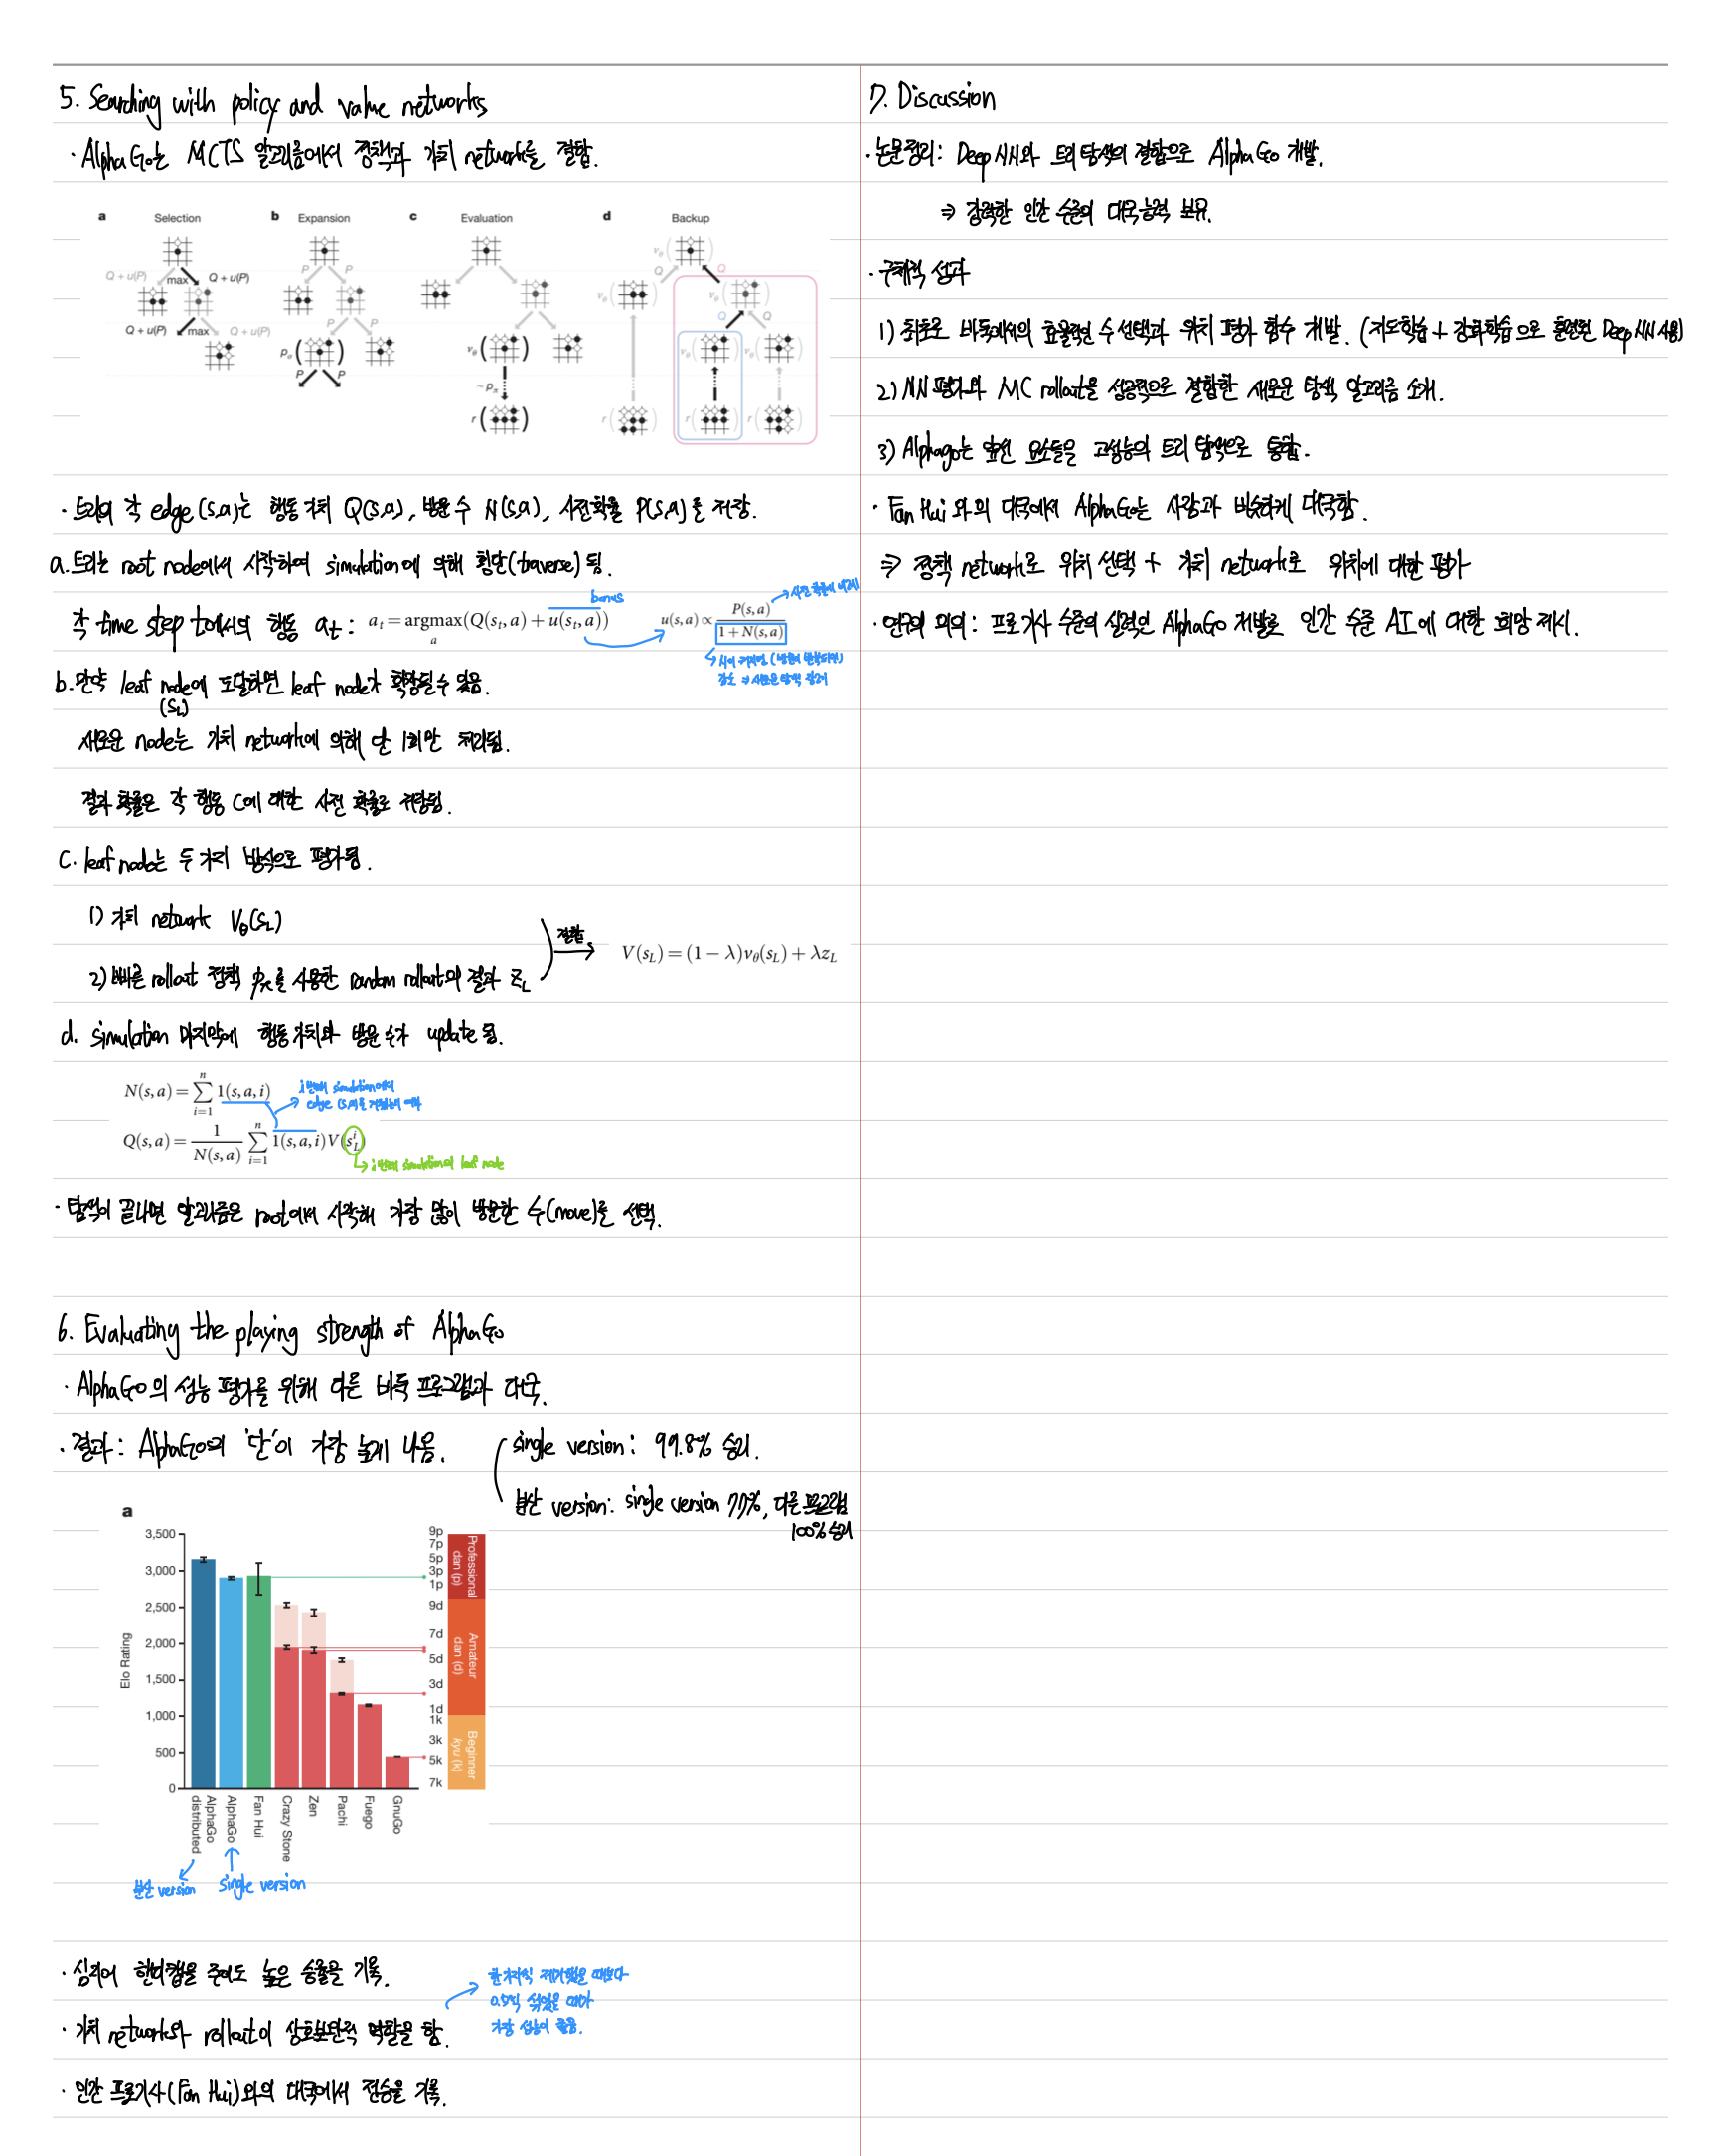 5. Searching with policy and value networks
· AlphaGo는 MCTS 알고리즘에서 정책과 가치 network를 결합.
a Selection b Expansion c Evaluation d Backup
Q + u(P) max Q + u(P)
Q + u(P) max Q + u(P)
P P
P P
pσ
P P
vθ
~pπ
r
vθ
Q Q
vθ vθ
Q Q
vθ vθ
r r r
· 트리의 각 edge (s,a)는 행동 가치 Q(s,a), 방문 수 N(s,a), 사전확률 P(s,a)를 저장.
a. 트리는 root node에서 시작하여 simulation에 의해 횡단(traverse) 됨.
bonus
사전 확률에 비례
각 time step t에서의 행동 at : at = argmax a (Q(st, a) + u(st, a)) u(s, a) ∝ P(s, a) / 1 + N(s, a)
감소 ⇒ 새로운 탐색 장려
b. 만약 leaf node에 도달하면 leaf node가 확장될 수 있음.
(SL)
새로운 node는 가치 network에 의해 단 1회만 처리됨.
결과 확률은 각 행동 에 대한 사전 확률로 저장됨.
c. leaf node는 두 가지 방식으로 평가됨.
1) 가치 network Vθ(SL)
결합
V(sL) = (1 − λ)vθ(sL) + λzL
2) 빠른 rollout 정책 pπ를 사용한 random rollout의 결과 ZL
d. simulation 마지막에 행동 가치와 방문 수가 update 됨.
N(s, a) = Σ i=1 n 1(s, a, i)
i번째 simulation에서
edge (s,a)를 지났는지 여부
Q(s, a) = 1 / N(s, a) Σ i=1 n 1(s, a, i) V(sL i)
i번째 simulation의 leaf node
· 탐색이 끝나면 알고리즘은 root에서 시작해 가장 많이 방문한 수(move)를 선택.
6. Evaluating the playing strength of AlphaGo
· AlphaGo의 성능 평가를 위해 다른 바둑 프로그램과 대국.
· 결과 : AlphaGo의 '단'이 가장 높게 나옴.
single version : 99.8% 승리.
분산 version : single version 77%, 다른 프로그램
100% 승리
a
Elo Rating
3,500
3,000
2,500
2,000
1,500
1,000
500
0
9p
7p
5p
3p
1p
9d
7d
5d
3d
1d
1k
3k
5k
7k
Professional dan (p)
Amateur dan (d)
Beginner kyu (k)
AlphaGo distributed
AlphaGo
Fan Hui
Crazy Stone
Zen
Pachi
Fuego
GnuGo
분산 version
single version
· 심지어 핸디캡을 주어도 높은 승률을 기록.
한 가지씩 제거했을 때보다
0.5씩 섞었을 때가
가장 성능이 좋음.
· 가치 network와 rollout이 상호보완적 역할을 함.
· 인간 프로기사(Fan Hui)와의 대국에서 전승을 기록.
7. Discussion
· 논문정리 : Deep NN와 트리 탐색의 결합으로 AlphaGo 개발.
⇒ 강력한 인간 수준의 대국 능력 보유.
· 구체적 성과
1) 최초로 바둑에서의 효율적인 수 선택과 위치 평가 함수 개발. (지도학습 + 강화학습으로 훈련된 Deep NN 사용)
2) NN 평가와 MC rollout을 성공적으로 결합한 새로운 탐색 알고리즘 소개.
3) Alphago는 앞선 요소들을 고성능의 트리 탐색으로 통합.
· Fan Hui 와의 대국에서 AlphaGo는 사람과 비슷하게 대국함.
⇒ 정책 network로 위치 선택 + 가치 network로 위치에 대한 평가
· 연구의 의의 : 프로기사 수준의 실력인 AlphaGo 개발로 인간 수준 AI에 대한 희망 제시.